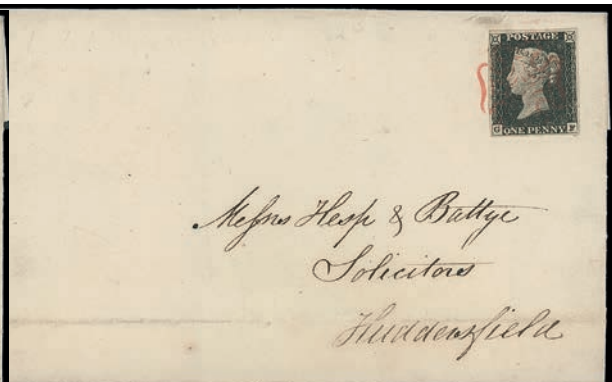 POSTAGE
G ONE PENNY F
Messrs Hesp & Battye
Solicitors
Huddersfield